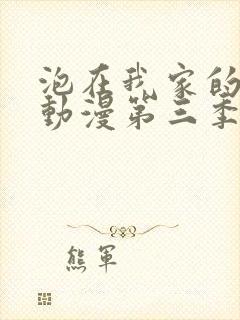 泡在我家的
動漫第三季
熊軍